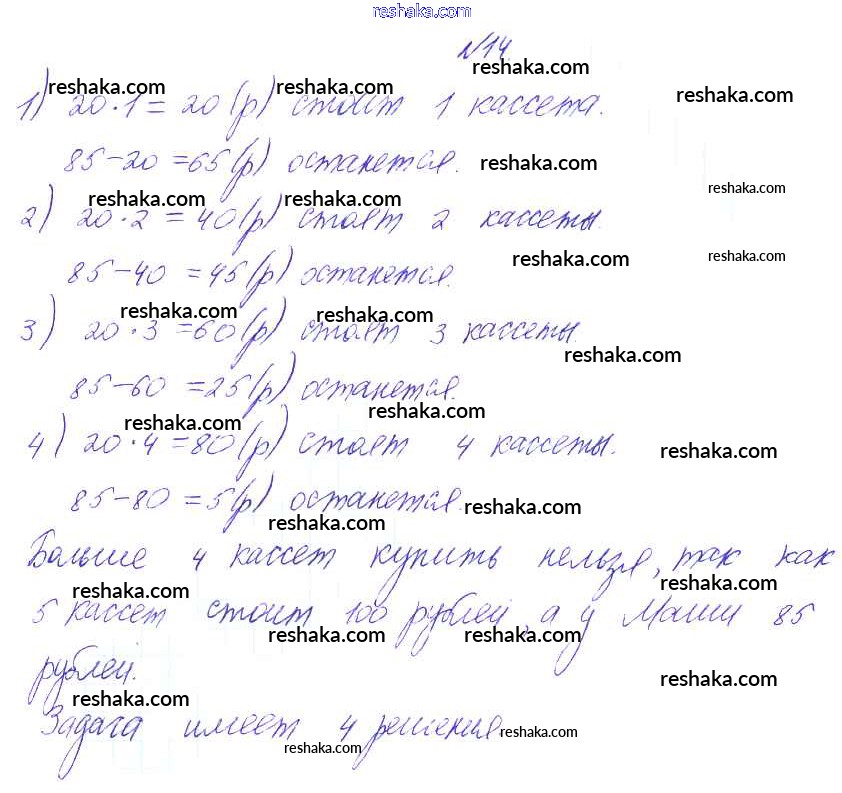 reshaka.com
№14.
reshaka.com
reshaka.com reshaka.com reshaka.com
1) 20·1= 20(р) стоит 1 кассета.
85-20 =65(р) останется. reshaka.com
reshaka.com reshaka.com reshaka.com
2) 20·2 =40(р) стоят 2 кассеты.
reshaka.com reshaka.com
85-40 =45(р) останется.
reshaka.com reshaka.com
3) 20·3 =60(р) стоят 3 кассеты.
reshaka.com
85-60 =25(р) останется.
reshaka.com reshaka.com
4) 20·4 =80(р) стоят 4 кассеты.
reshaka.com
85-80 =5(р) останется. reshaka.com
reshaka.com
Больше 4 кассет купить нельзя, так как
reshaka.com reshaka.com
5 кассет стоит 100 рублей, а у Маши 85
reshaka.com reshaka.com
рублей. reshaka.com
reshaka.com
Задача имеет 4 решения reshaka.com
reshaka.com